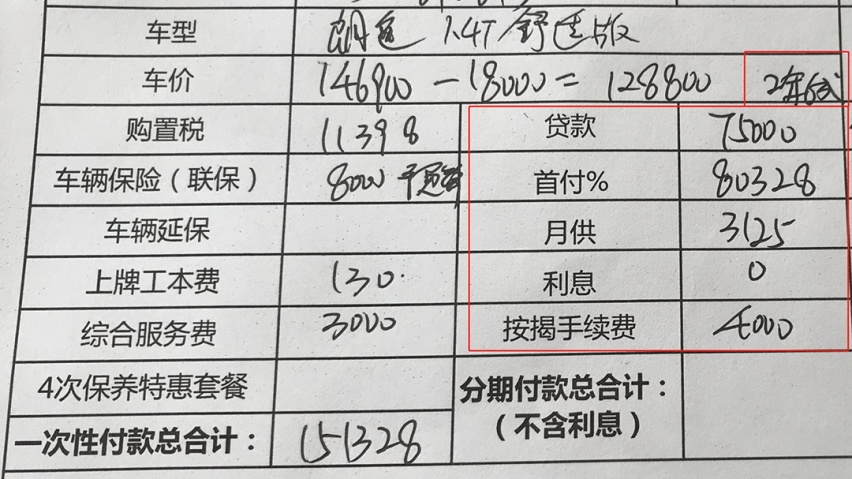 车型 朗逸 1.4T 舒适版
车价 146900-18000=128800 2年6式
购置税 11398 贷款 75000
车辆保险(联保) 8000 首付% 80328
车辆延保 月供 3125
上牌工本费 130 利息 0
综合服务费 3000 按揭手续费 4000
4次保养特惠套餐 分期付款总合计:
一次性付款总合计: 151328 (不含利息)